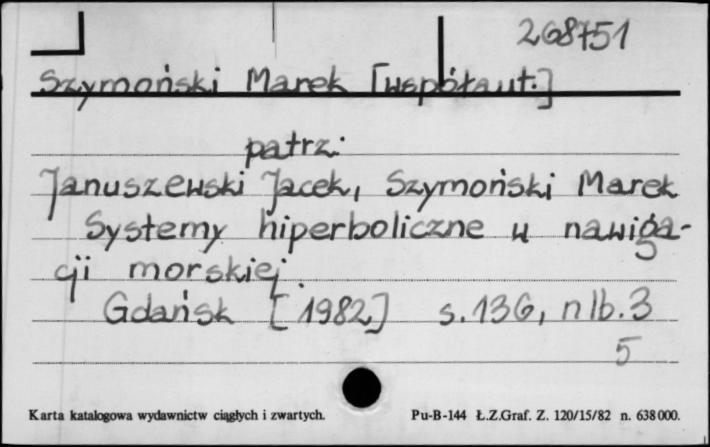 268751
Szymoński Marek [współaut.]
patrz:
Januszewski Jacek, Szymoński Marek
Systemy hiperboliczne w nawiga-
cji morskiej.
Gdańsk [1982] s. 136, nlb. 3
5
Karta katalogowa wydawnictw ciągłych i zwartych. Pu-B-144 Ł.Z.Graf. Z. 120/15/82 n. 638000.